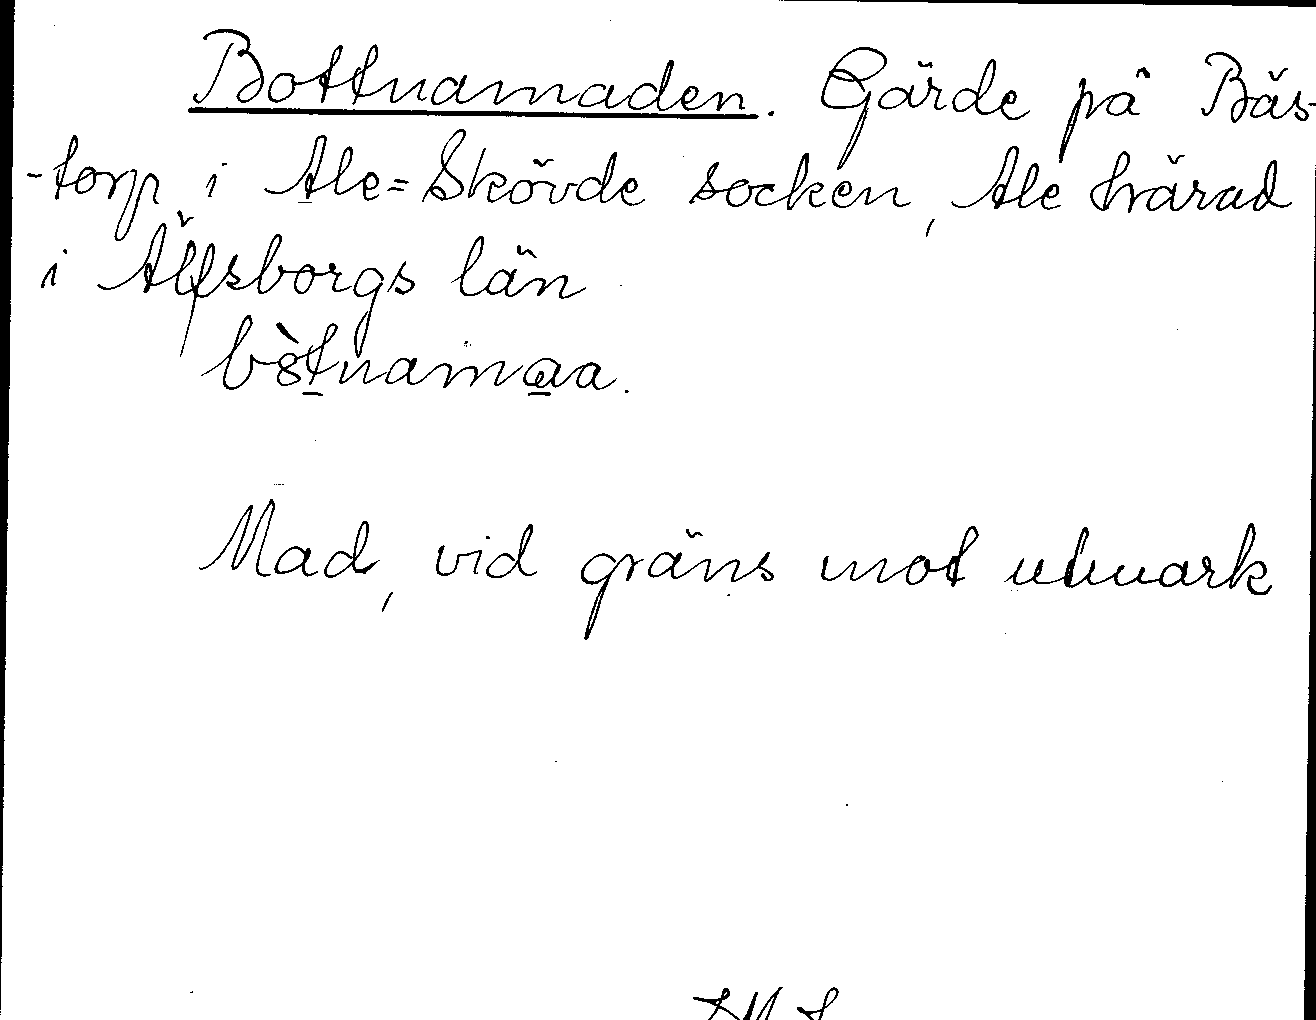 Bottnamaden. Gärde på Bäs-
-torp i Ale=Skövde socken, Ale härad
i Älfsborgs län
Mad, vid gräns mot utmark